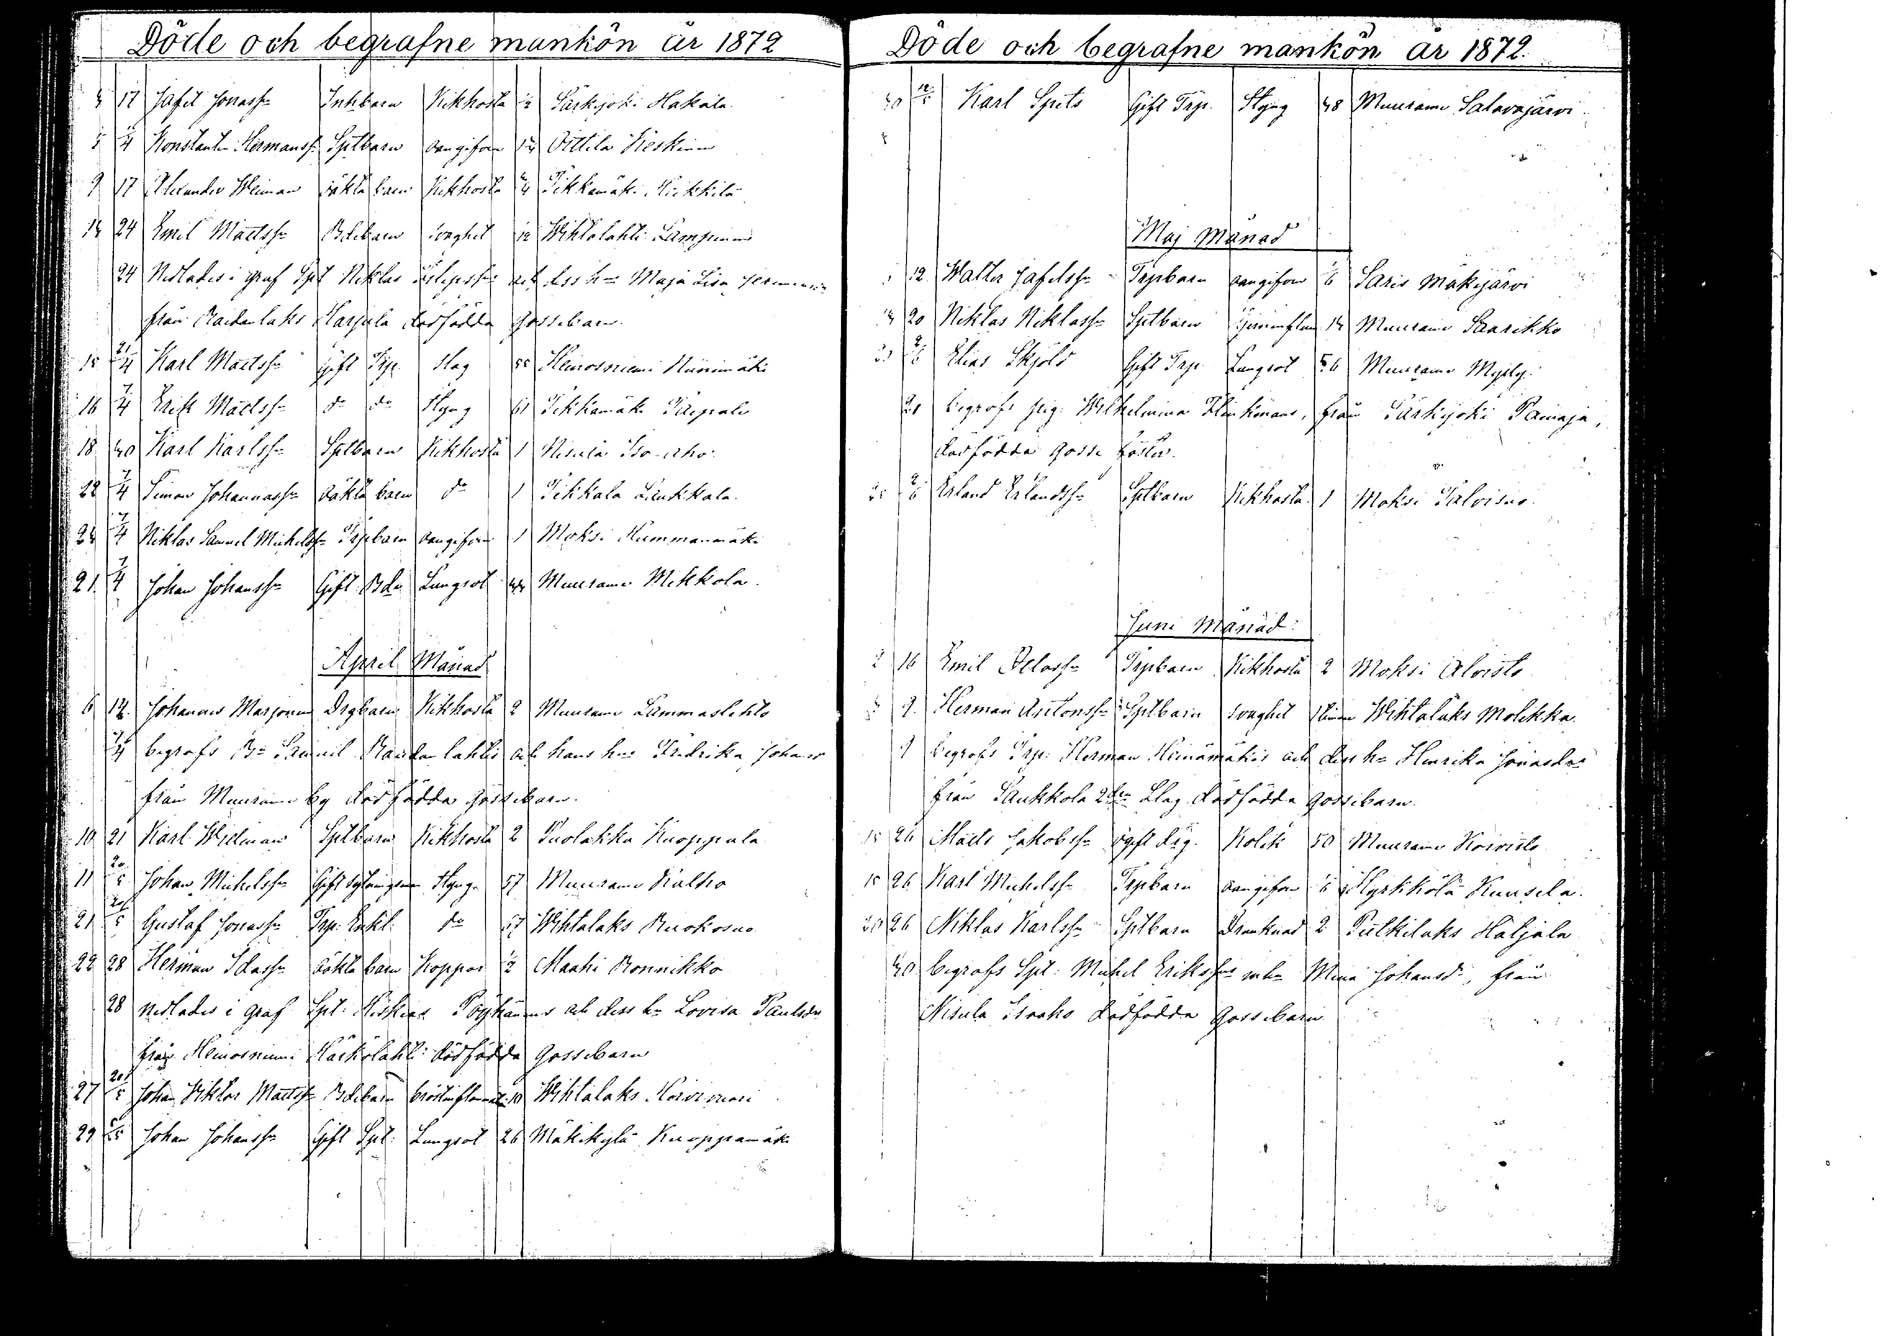 Döde och begrafne mankön år 1872
17 Jafet Jonass: Inhbarn Kikhosta ½ Särkijoki Hakala
5 Konstantin Hermanss: Sptbarn oangifven Oittila Keskinen
9 17 Alexander Weiman oäkta barn Kikhosta Tikkamäki Heikkilä
14 24 Emil Mattss: Bdebarn svaghet Wihtalahti Lampinen
24 Nedlades i graf Spt Niklas och dess h: Maja Lisa
från Raidanlaks Harjula dödfödda gossebarn.
15 21/4 Karl Mattss: Gift Trp. Slag 55 Heinosniemi Niinimäki
16 7/4 Erik Mattss: do do Styng 61 Tikkamäki
18 Karl Karlss: Sptbarn Kikhosta 1 Nisula Iso-aho
22 7/4 Simon Johannass: oäkta barn do 1 Tikkala Laukkala
24 7/4 Niklas Samuel Michelss: Trpbarn oangifven 1 Moksi Hummanmäki
21. 7/4 Johan Johanss: Gift Bde Lungsot 44 Muurame Mikkola
April Månad
6 14 Johannes Marjonen Drgbarn Kikhosta 2 Muurame Lammaslehto
7/4 begrofs B: Samuel Raidanlahtis och hans h: Fredrika Johans
från Muurame by dödfödda gossebarn.
10 21 Karl Widman Sptbarn Kikhosta 2 Puolakka Kuoppala
11 20/5 Johan Michelss: Gift Styng 57 Muurame Kalho
21 20/5 Gustaf Jonass: Trp. Enkl: do 57 Wihtalaks Ruokosuo
22 28 Herman oäkta barn Koppor ½ Maahi Ronnikko
28 nedlades i graf Spt: Hiskias Pöyhönens och dess h: Lovisa Paulsdr
från Heinosniemi Häkölahti dödfödda gossebarn
27 20/5 Johan Viktor Mattss: Bdebarn bröstinflammat: 10 Wihtalaks Hoivuori
29 5/5 Johan Johanss: Gift Spt: Lungsot 26 Mäkikylä Kuoppamäki
Döde och begrafne mankön år 1872.
30 12/5 Karl Spets Gift Trp. Styng 48 Muurame Salavajärvi
Maj Månad
12 Walter Jafetss: Trpbarn oangifven Saris Mäkijärvi
14 20 Niklas Niklass: Sptbarn 14 Muurame Saarikko
23 2/6 Elias Sköld Gift Trp. Lungsot 56 Muurame Mylly.
21 begrofs pig: Wilhelmina Flinkmans, från Särkijoki Painaja,
dödfödda gosse foster.
25 2/6 Erland Erlandss: Sptbarn Kikhosta 1 Moksi Salvisuo
Juni Månad:
2 16 Emil Trpbarn Kikhosta 2 Moksi Alvisto
9. Herman Antonss: Sptbarn svaghet Wihtalaks Molikka
9 begrofs Trp: Herman Heinämäkis och dess h: Henrika Jonasdr
från Saukkola 2dra Lag dödfödda gossebarn.
15 26 Matts Jakobss: ogift drg. Kolik 50 Muurame Koivisto
15 26 Karl Michelss: Trpbarn oangifven Hyrkkölä Kuusela.
20 26 Niklas Karlss: Sptbarn Drunknad 2 Putkilaks Hatjala
30 begrofs Spt: Michel Erikss: och h: Mina Johansd:, från
Nisula Isoaho dödfödda gossebarn